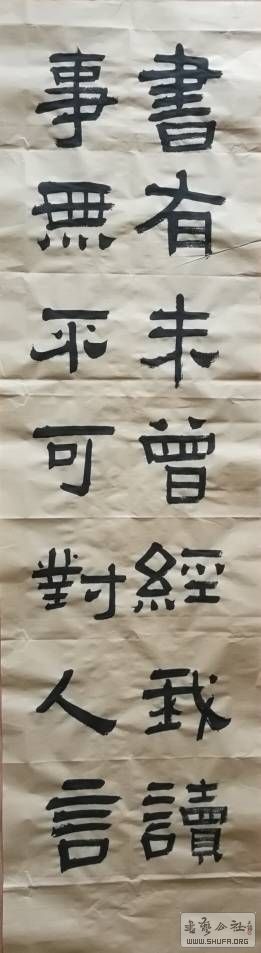 書有未曾經我讀
事無不可對人言
书艺公社
WWW.SHUFA.ORG